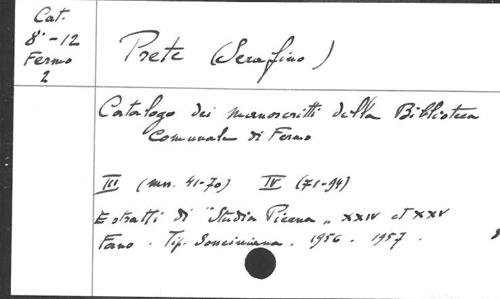 Cat.
8° - 12
Fermo
2
Prete (Serafino)
Catalogo dei manoscritti della Biblioteca
Comunale di Fermo
III (mss. 41-70) IV (71-94)
Estratti di "Studia Picena" XXIV et XXV
Fano. Tip. Sonciniana. 1956. 1957.